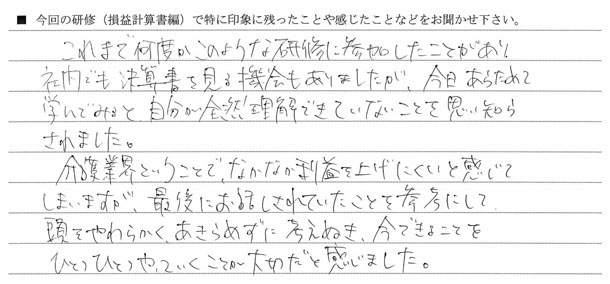 ■ 今回の研修（損益計算書編）で特に印象に残ったことや感じたことなどをお聞かせ下さい。
これまで何度かこのような研修に参加したことがあり
社内でも決算書を見る機会もありましたが、今日あらためて
学んでみると、自分が全然理解できていないことを思い知ら
されました。
介護業界ということで、なかなか利益を上げにくいと感じて
しまいますが、最後にお話しされていたことを参考にして
頭をやわらかく、あきらめずに考えぬき、今できることを
ひとつひとつやっていくことが大切だと感じました。